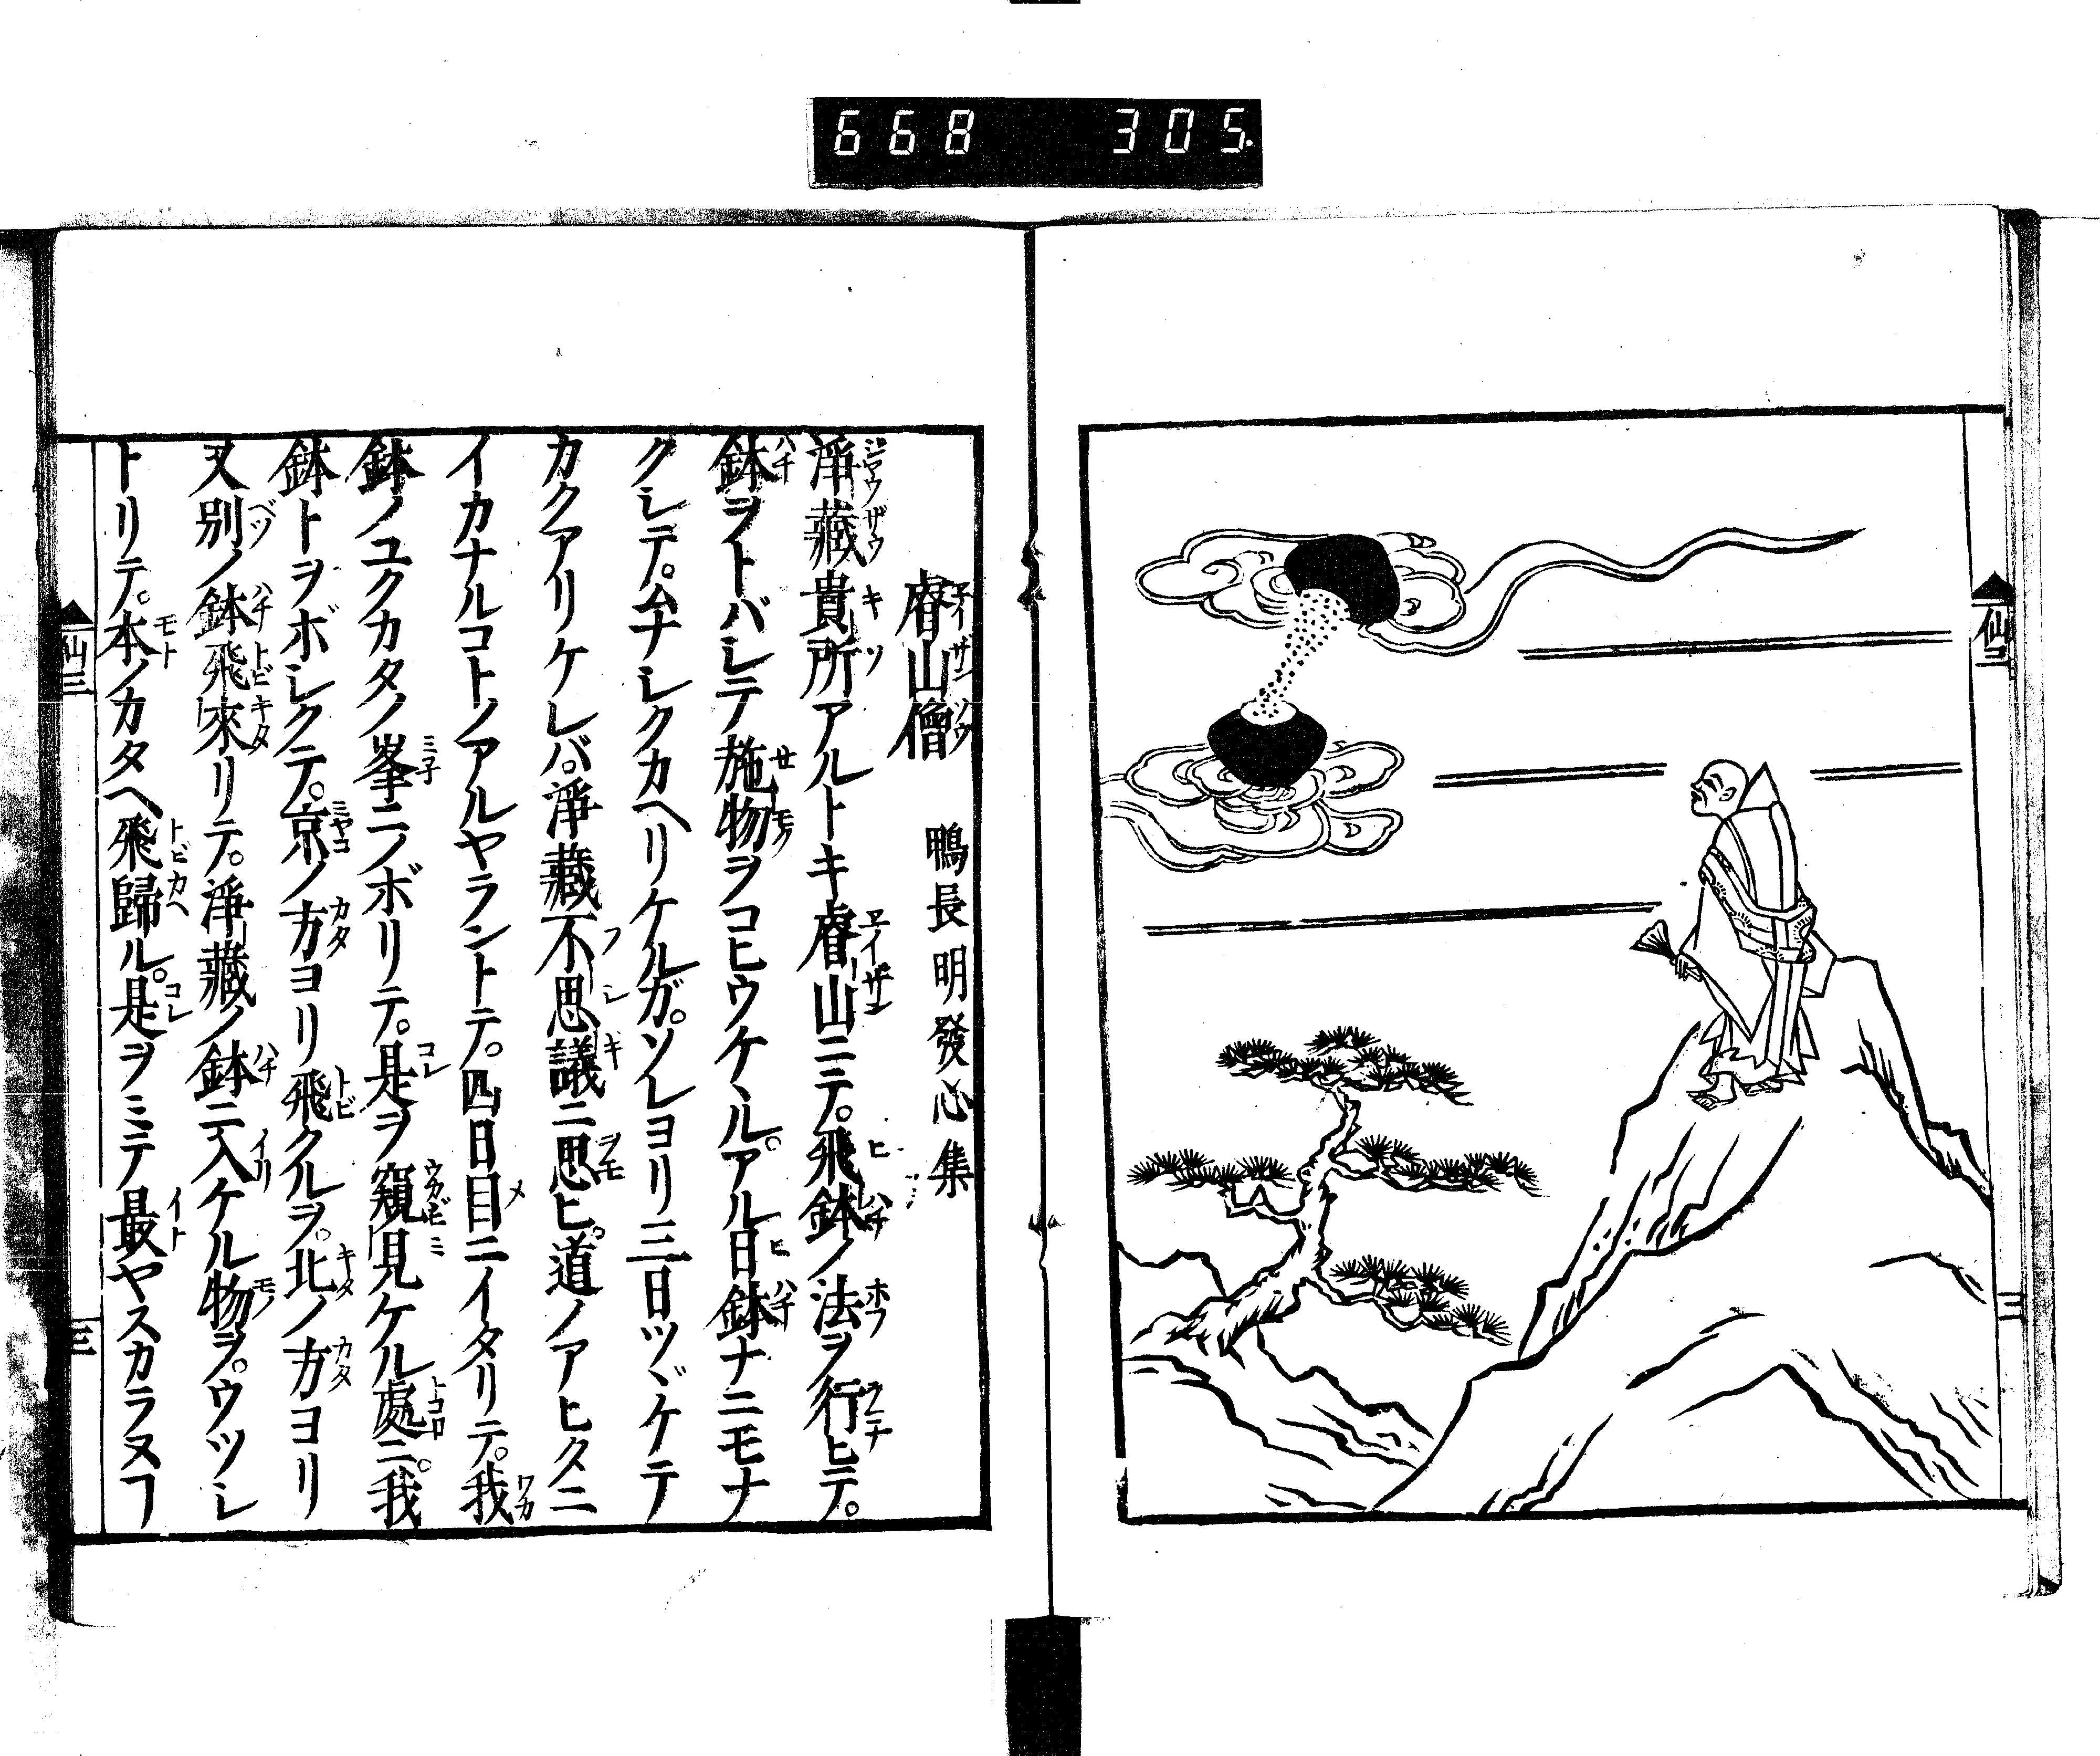 668 305.
仙二
二
睿山僧 鴨長明發心集
淨藏貴所アルトキ睿山ニテ。飛鉢ノ法ヲ行ヒテ。
鉢ヲトバシテ施物ヲコヒウケヽル。アル日鉢ナニモナ
クシテ。ムナシクカヘリケルガ。ソレヨリ三日ツヾケテ
カクアリケレバ。淨藏不思議ニ思ヒ。道ノアヒタニ
イカナルコトノアルヤラントテ。四日目ニイタリテ。我
鉢ノユクカタノ峯ニノボリテ。是ヲ窺見ケル處ニ。我
鉢トヲボシクテ。京ノ方ヨリ飛クルヲ。北ノ方ヨリ
又別ノ鉢飛來リテ。淨藏ノ鉢ニ入ケル物ヲ。ウツシ
トリテ。本ノカタヘ飛歸ル。是ヲミテ最ヤスカラヌヿ
仙二
三